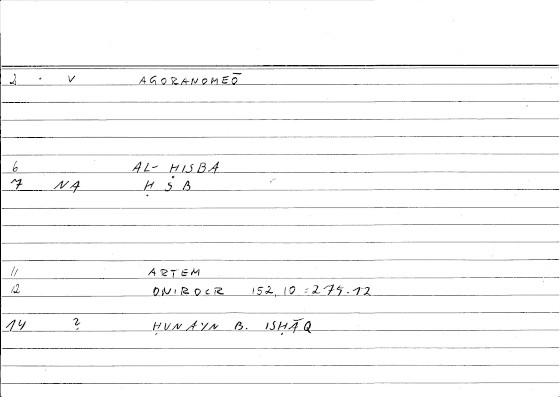 2 · V AGORANOMEŌ
6 AL- ḤISBA
7 NA Ḥ S B
11 ARTEM
12 ONIROCR 152,10 = 275.12
14 ? ḤUNAYN B. ISḤĀQ